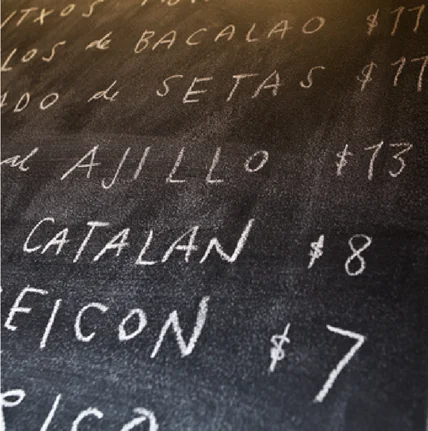 ITXOS
LOS de BACALAO $11
ADO de SETAS $11
al AJILLO $13
CATALAN $8
EICON $7
RICO